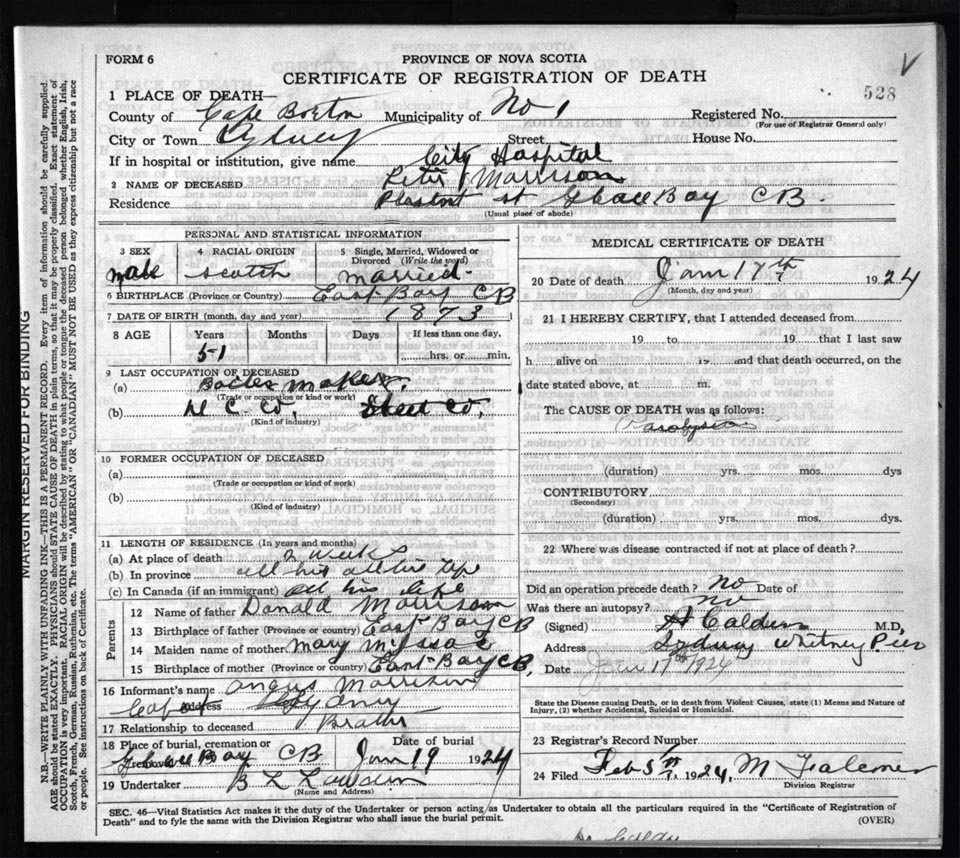 FORM 6
PROVINCE OF NOVA SCOTIA
CERTIFICATE OF REGISTRATION OF DEATH
528
1 PLACE OF DEATH—
County of Cape Breton Municipality of No 1 Registered No.
(For use of Registrar General only)
City or Town Sydney Street House No.
If in hospital or institution, give name City Hospital
2 NAME OF DECEASED Peter Morrison
Residence Pleasant St Glace Bay CB.
(Usual place of abode)
PERSONAL AND STATISTICAL INFORMATION
3 SEX 4 RACIAL ORIGIN 5 Single, Married, Widowed or Divorced (Write the word)
male Scotch Married.
6 BIRTHPLACE (Province or Country) East Bay CB
7 DATE OF BIRTH (month, day and year) 1873
8 AGE Years Months Days If less than one day,
51 hrs. or min.
9 LAST OCCUPATION OF DECEASED
(a) Boiler Maker.
(Trade or occupation or kind of work)
(b) Co, Steel Co,
(Kind of industry)
10 FORMER OCCUPATION OF DECEASED
(a)
(Trade or occupation or kind of work)
(b)
(Kind of industry)
11 LENGTH OF RESIDENCE (In years and months)
(a) At place of death 2 weeks
(b) In province all his life
(c) In Canada (if an immigrant) all his life
Parents
12 Name of father Donald Morrison
13 Birthplace of father (Province or country) East Bay CB
14 Maiden name of mother Mary
15 Birthplace of mother (Province or country) East Bay CB
16 Informant's name Angus Morrison
Address Sydney
17 Relationship to deceased Brother
18 Place of burial, cremation or removal Date of burial
Glace Bay CB Jan 19 1924
19 Undertaker B L
(Name and Address)
MEDICAL CERTIFICATE OF DEATH
20 Date of death Jan 17th 1924
(Month, day and year)
21 I HEREBY CERTIFY, that I attended deceased from
19 to 19 that I last saw
h alive on 19 and that death occurred, on the
date stated above, at m.
The CAUSE OF DEATH was as follows:
Paralysis
(duration) yrs. mos. dys
CONTRIBUTORY
(Secondary)
(duration) yrs. mos. dys.
22 Where was disease contracted if not at place of death?
Did an operation precede death? No Date of
Was there an autopsy? No
(Signed) A Calder M.D,
Address Sydney Whitney Pier
Date Jan 17th 1924
State the Disease causing Death, or in death from Violent Causes, state (1) Means and Nature of
Injury, (2) whether Accidental, Suicidal or Homicidal.
23 Registrar's Record Number
24 Filed Feb 5th, 1924, M Falconer
Division Registrar
SEC. 46—Vital Statistics Act makes it the duty of the Undertaker or person acting as Undertaker to obtain all the particulars required in the "Certificate of Registration of
Death" and to fyle the same with the Division Registrar who shall issue the burial permit. (OVER)
MARGIN RESERVED FOR BINDING
N.B.—WRITE PLAINLY WITH UNFADING INK—THIS IS A PERMANENT RECORD. Every item of information should be carefully supplied.
AGE should be stated EXACTLY. PHYSICIANS should STATE CAUSE OF DEATH in plain terms, so that it may be properly classified. Exact statement of
OCCUPATION is very important. RACIAL ORIGIN will be described by stating to what people or tongue the deceased person belonged whether English, Irish,
Scotch, French, German, Russian, Ruthenian, etc. The terms "AMERICAN" OR "CANADIAN" MUST NOT BE USED as they express citizenship but not a race
or people. See instructions on back of Certificate.